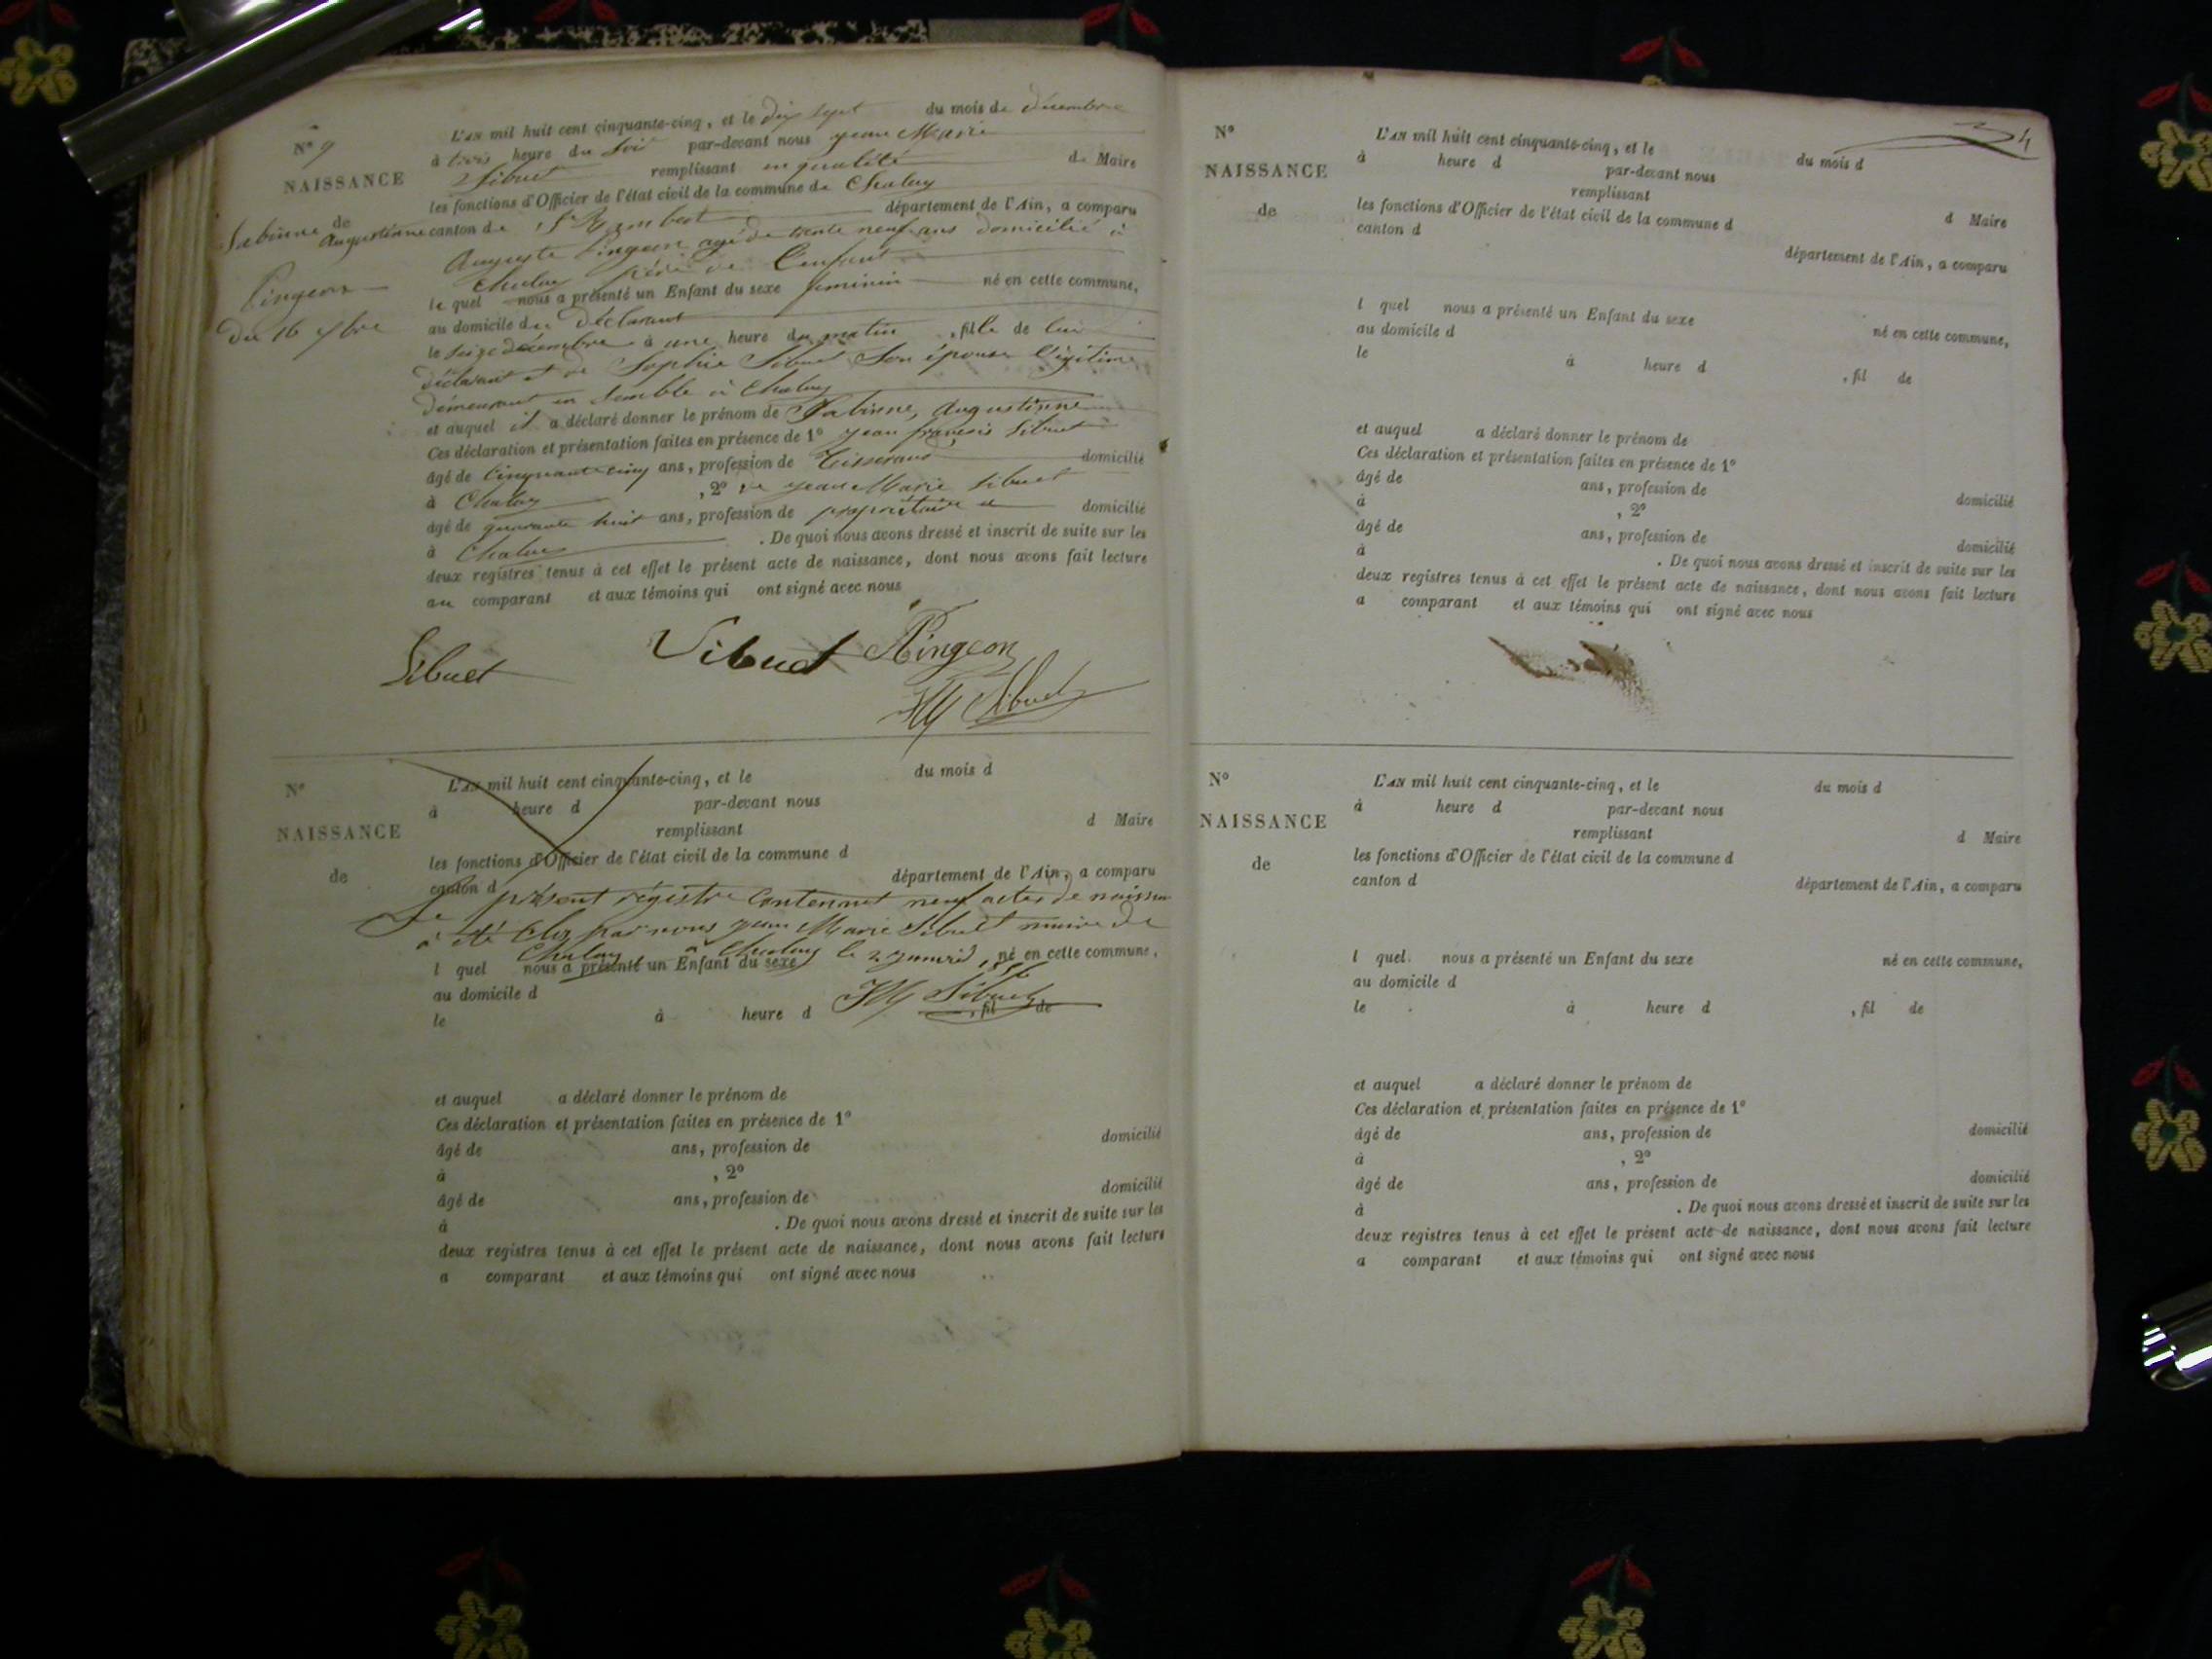 N° 9
NAISSANCE
de
Sabinne Augustinne
Pingeon
du 16 xbre
L'AN mil huit cent cinquante-cinq, et le dix sept du mois de décembre
à trois heure du soir par-devant nous jean Marie
Sibuet remplissant en qualité de Maire
les fonctions d'Officier de l'état civil de la commune de Chaley
canton de St Rambert département de l'Ain, a comparu
Auguste Pingeon agé de trente neuf ans domicilié à
Chaley père de l'enfant
le quel nous a présenté un Enfant du sexe feminin né en cette commune,
au domicile du déclarant
le seize décembre à une heure du matin, fille de lui
déclarant et de Sophie Sibuet son épouse légitime
demeurant en semble à Chaley
et auquel il a déclaré donner le prénom de Sabinne, Augustinne
Ces déclaration et présentation faites en présence de 1° jean françois Sibuet
âgé de cinquante cinq ans, profession de Tisserand domicilié
à Chaley, 2° de jean Marie Sibuet
âgé de quarante huit ans, profession de propriétaire domicilié
à Chaley. De quoi nous avons dressé et inscrit de suite sur les
deux registres tenus à cet effet le présent acte de naissance, dont nous avons fait lecture
au comparant et aux témoins qui ont signé avec nous
Sibuet Sibuet Pingeon
JM Sibuet
N°
NAISSANCE
de
L'AN mil huit cent cinquante-cinq, et le du mois d
à heure d par-devant nous
remplissant d Maire
les fonctions d'Officier de l'état civil de la commune d
canton d département de l'Ain, a comparu
Le présent régistre contennt neuf actes de naissan
a été clos par nous jean Marie Sibuet maire de
Chaley à Chaley le 2 janvié 1856
l quel nous a présenté un Enfant du sexe né en cette commune,
au domicile d
JM Sibuet
le à heure d , fil de
et auquel a déclaré donner le prénom de
Ces déclaration et présentation faites en présence de 1°
âgé de ans, profession de domicilié
à , 2°
âgé de ans, profession de domicilié
à . De quoi nous avons dressé et inscrit de suite sur les
deux registres tenus à cet effet le présent acte de naissance, dont nous avons fait lecture
a comparant et aux témoins qui ont signé avec nous
34
N°
NAISSANCE
de
L'AN mil huit cent cinquante-cinq, et le du mois d
à heure d par-devant nous
remplissant d Maire
les fonctions d'Officier de l'état civil de la commune d
canton d département de l'Ain, a comparu
l quel nous a présenté un Enfant du sexe né en cette commune,
au domicile d
le à heure d , fil de
et auquel a déclaré donner le prénom de
Ces déclaration et présentation faites en présence de 1°
âgé de ans, profession de domicilié
à , 2°
âgé de ans, profession de domicilié
à . De quoi nous avons dressé et inscrit de suite sur les
deux registres tenus à cet effet le présent acte de naissance, dont nous avons fait lecture
a comparant et aux témoins qui ont signé avec nous
N°
NAISSANCE
de
L'AN mil huit cent cinquante-cinq, et le du mois d
à heure d par-devant nous
remplissant d Maire
les fonctions d'Officier de l'état civil de la commune d
canton d département de l'Ain, a comparu
l quel nous a présenté un Enfant du sexe né en cette commune,
au domicile d
le à heure d , fil de
et auquel a déclaré donner le prénom de
Ces déclaration et présentation faites en présence de 1°
âgé de ans, profession de domicilié
à , 2°
âgé de ans, profession de domicilié
à . De quoi nous avons dressé et inscrit de suite sur les
deux registres tenus à cet effet le présent acte de naissance, dont nous avons fait lecture
a comparant et aux témoins qui ont signé avec nous